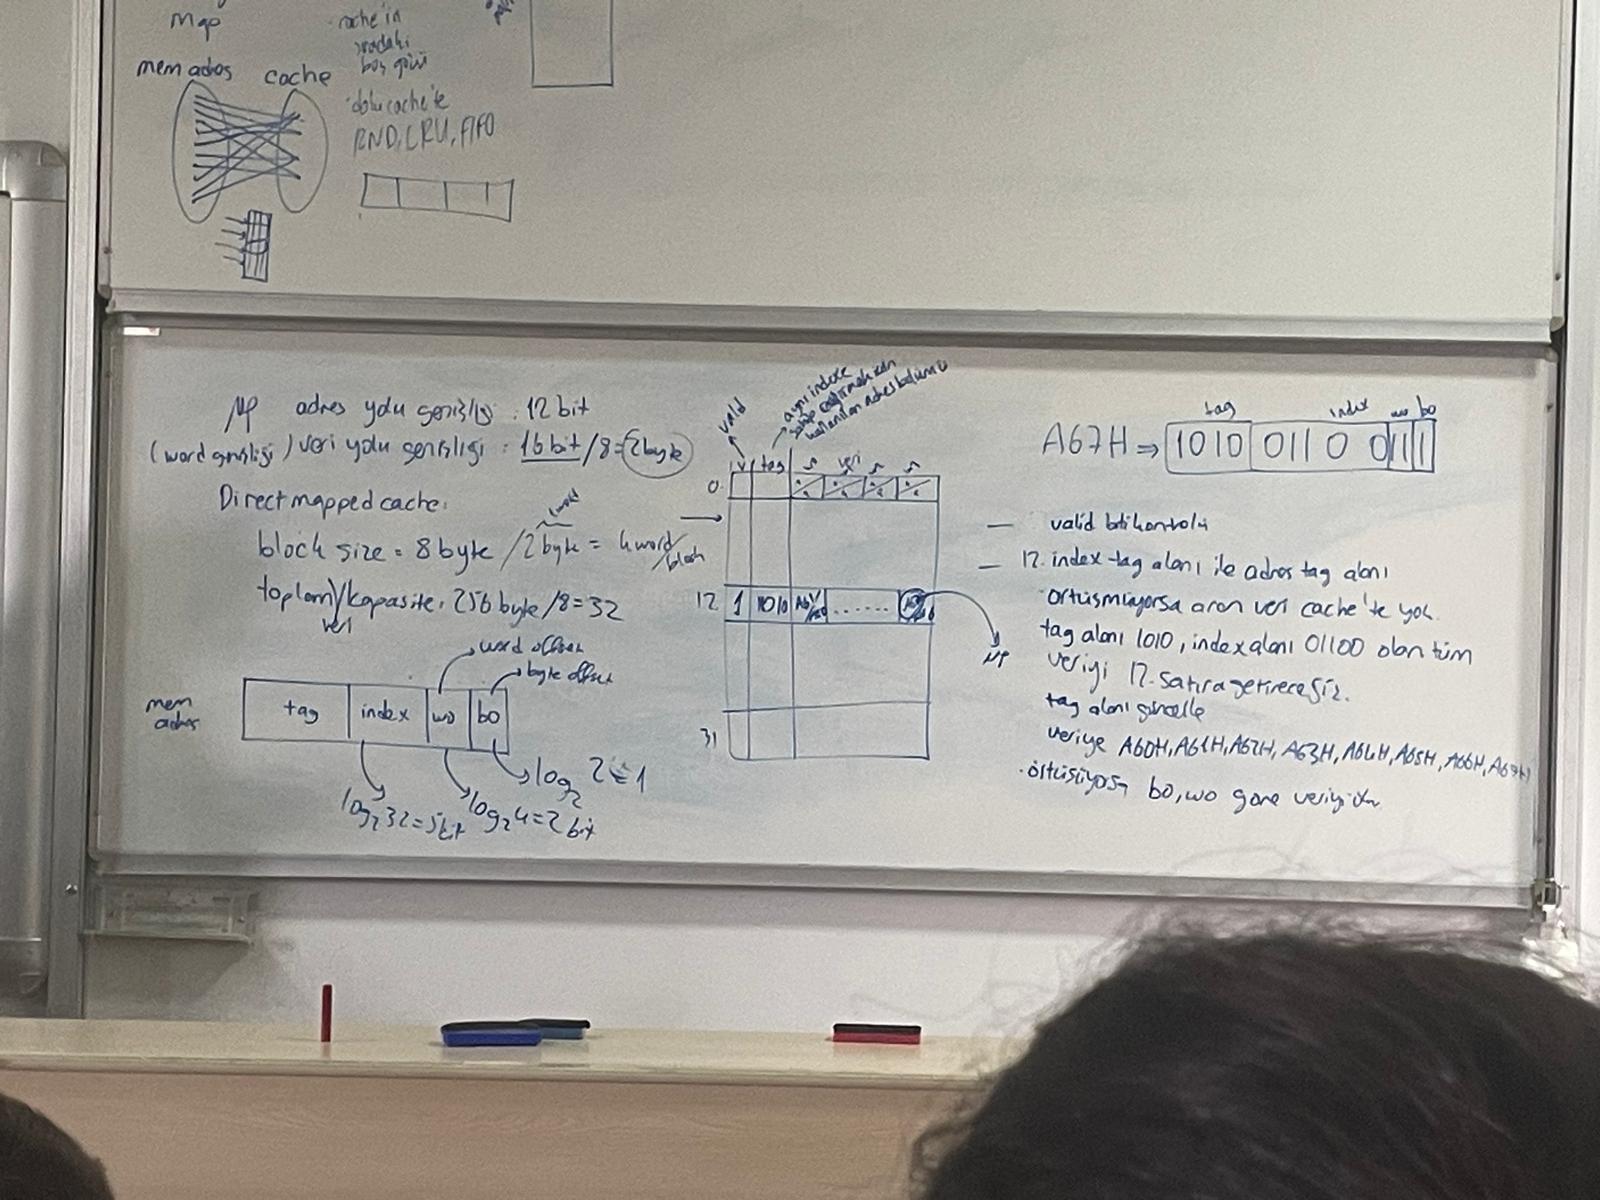 Map
mem adres cache
cache'in
sıradaki
boş gözü
dolu cache'te
RND, LRU, FIFO
µP adres yolu genişliği: 12 bit
(word genişliği) veri yolu genişliği: 16 bit/8=2byte
Direct mapped cache:
1 word
block size = 8 byte / 2 byte = 4 word/block
toplam kapasite: 256 byte/8=32
veri
word offset
byte offset
mem adres
tag index wo bo
log₂32=5bit log₂4=2 bit log₂2=1
valid
aynı indexe
kullanılan adres bölümü
v tag veri
0
12 1 1010 ......
31
µP
tag index wo bo
A67H ⇒ 1010 011 0 0 11 1
— valid biti kontrolü
— 12. index tag alanı ile adres tag alanı
örtüşmüyorsa aran veri cache'te yok.
tag alanı 1010, index alanı 01100 olan tüm
veriyi 12. satıra getireceğiz.
tag alanı güncelle
veriye A60H, A61H, A62H, A63H, A64H, A65H, A66H, A67H
örtüşüyorsa bo, wo göre veriyi